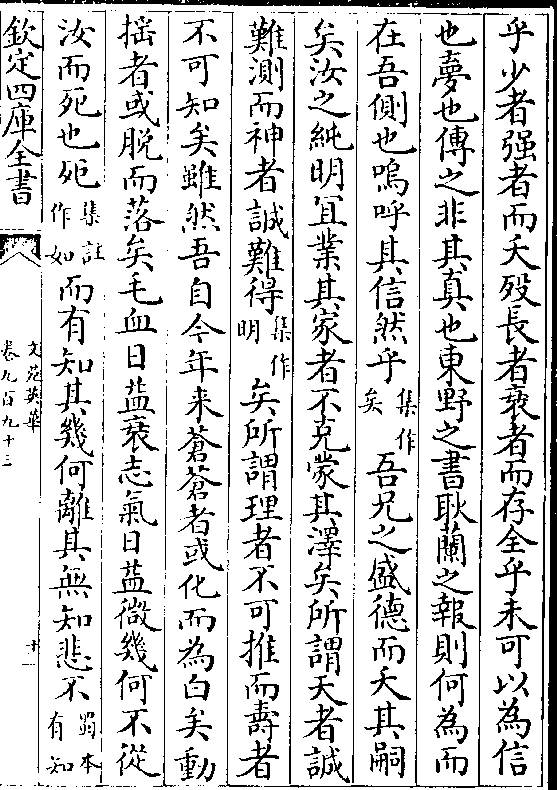 乎少者强者而夭殁長者衰者而存全乎未可以為信
也夢也傳之非其真也東野之書耿蘭之報則何為而
在吾側也嗚呼其信然乎集作矣吾兄之盛德而夭其嗣
矣汝之純明冝業其家者不克蒙其澤矣所謂天者誠
難測而神者誠難得集作明矣所謂理者不可推而壽者
不可知矣雖然吾自今年来蒼蒼者或化而為白矣動
揺者或脱而落矣毛血日益衰志氣日益微幾何不從
汝而死也死集註作如而有知其幾何離其無知悲不蜀本有知
欽定四庫全書
文苑英華
卷九百九十三